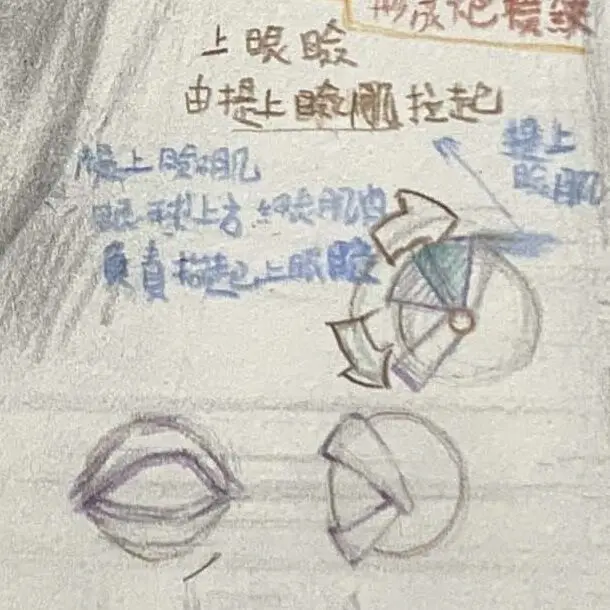 形成抱
上眼瞼
由提上瞼肌拉起
提上瞼肌
提上瞼肌
眼球上方 肌肉
負責 起上眼瞼